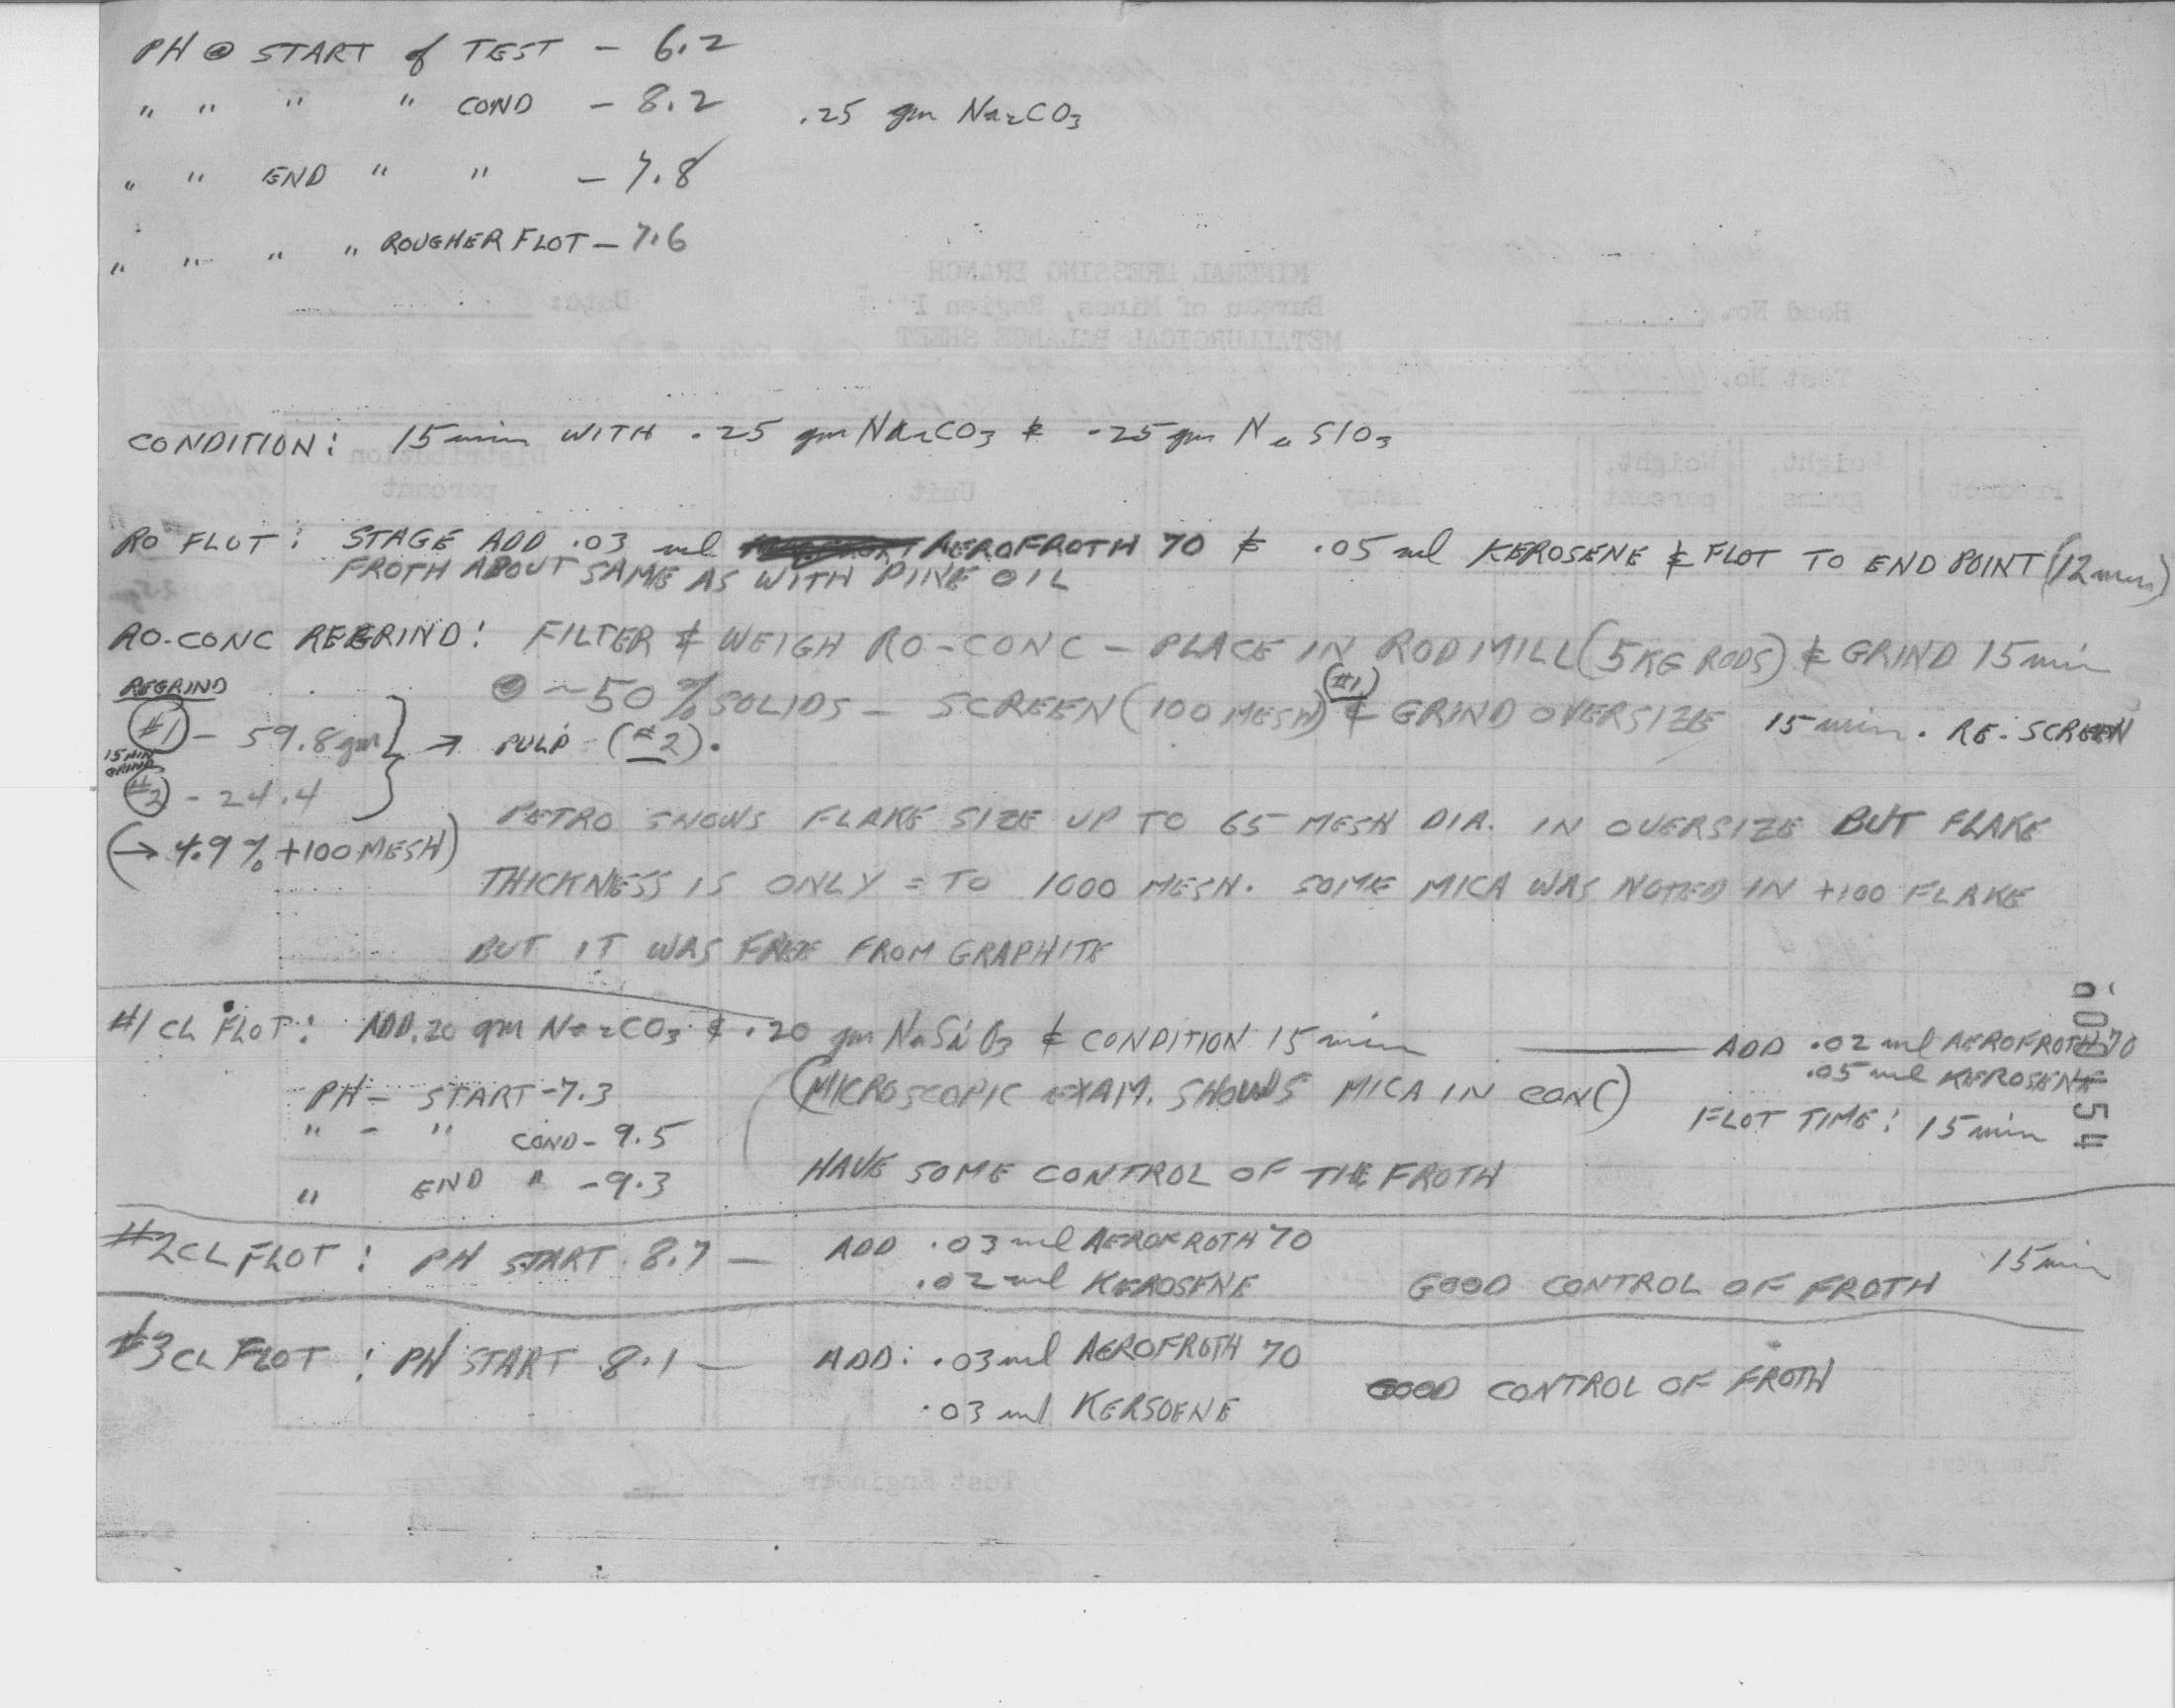 PH @ START of TEST - 6.2
" " " " COND - 8.2 .25 gm Na2CO3
" " END " " - 7.8
" " " " ROUGHER FLOT - 7.6
MINERAL DRESSING BRANCH
Bureau of Mines, Region I
METALLURGICAL BALANCE SHEET
Date:
Head No.
Test No.
CONDITION: 15 min WITH .25 gm Na2CO3 & .25 gm Na SIO3
Product Weight, grams Weight, percent Assay Unit Distribution percent
RO FLOT: STAGE ADD .03 ml AEROFROTH 70 & .05 ml KEROSENE & FLOT TO END POINT (12 min)
FROTH ABOUT SAME AS WITH PINE OIL
RO-CONC REGRIND: FILTER & WEIGH RO-CONC - PLACE IN ROD MILL (5KG RODS) & GRIND 15 min
@ ~50% SOLIDS - SCREEN (100 MESH) (#1) & GRIND OVERSIZE 15 min. RE-SCREEN
PULP - (#2).
REGRIND
#1 - 59.8 gm } →
15 MIN GRIND
#2 - 24.4
(→ 4.9 % +100 MESH)
PETRO SHOWS FLAKE SIZE UP TO 65 MESH DIA. IN OVERSIZE BUT FLAKE
THICKNESS IS ONLY = TO 1000 MESH. SOME MICA WAS NOTED IN +100 FLAKE
BUT IT WAS FREE FROM GRAPHITE
#1 CL FLOT: ADD .20 gm Na2CO3 & .20 gm NaSiO3 & CONDITION 15 min — ADD .02 ml AEROFROTH 70
.05 ml KEROSENE
PH - START - 7.3 (MICROSCOPIC EXAM. SHOWS MICA IN CONC)
FLOT TIME: 15 min
" - " COND - 9.5
" END " - 9.3 HAVE SOME CONTROL OF THE FROTH
#2 CL FLOT: PH START 8.7 — ADD .03 ml AEROFROTH 70
.02 ml KEROSENE GOOD CONTROL OF FROTH 15 min
#3 CL FLOT: PH START 8.1 — ADD: .03 ml AEROFROTH 70
.03 ml KERSOENE GOOD CONTROL OF FROTH
Test Engineer
Remarks: